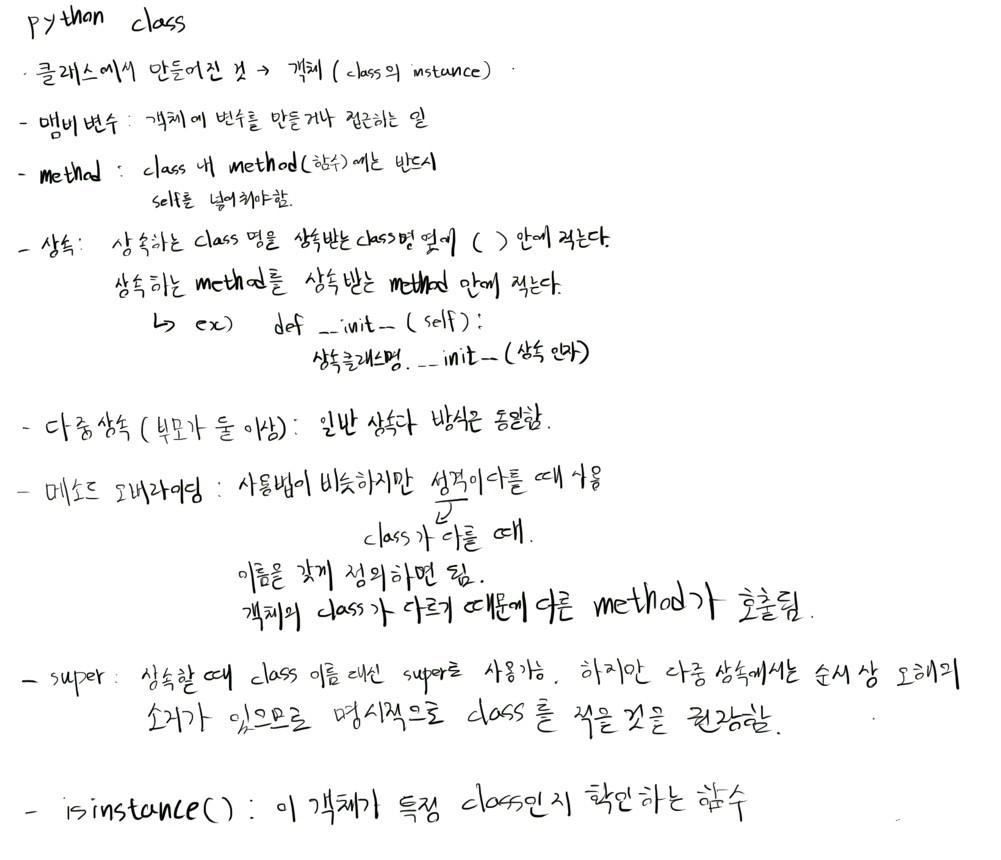 python class
· 클래스에서 만들어진 것 → 객체 (class의 instance)
- 맴버 변수 : 객체에 변수를 만들거나 접근하는 일
- method : class 내 method(함수)에는 반드시
self를 넣어줘야함.
- 상속 : 상속하는 class 명을 상속받는 class명 옆에 ( ) 안에 적는다.
상속하는 method를 상속받는 method 안에 적는다.
↳ ex) def __init__(self):
상속클래스명.__init__(상속 인자)
- 다중상속 (부모가 둘 이상) : 일반 상속과 방식은 동일함.
- 메소드 오버라이딩 : 사용법이 비슷하지만 성격이 다를 때 사용
class가 다를 때.
이름을 같게 정의하면 됨.
객체의 class가 다르기 때문에 다른 method가 호출됨.
- super : 상속할 때 class 이름 대신 super로 사용가능. 하지만 다중 상속에서는 순서 상 오해의
소지가 있으므로 명시적으로 class를 적을 것을 권장함.
- isinstance() : 이 객체가 특정 class인지 확인하는 함수